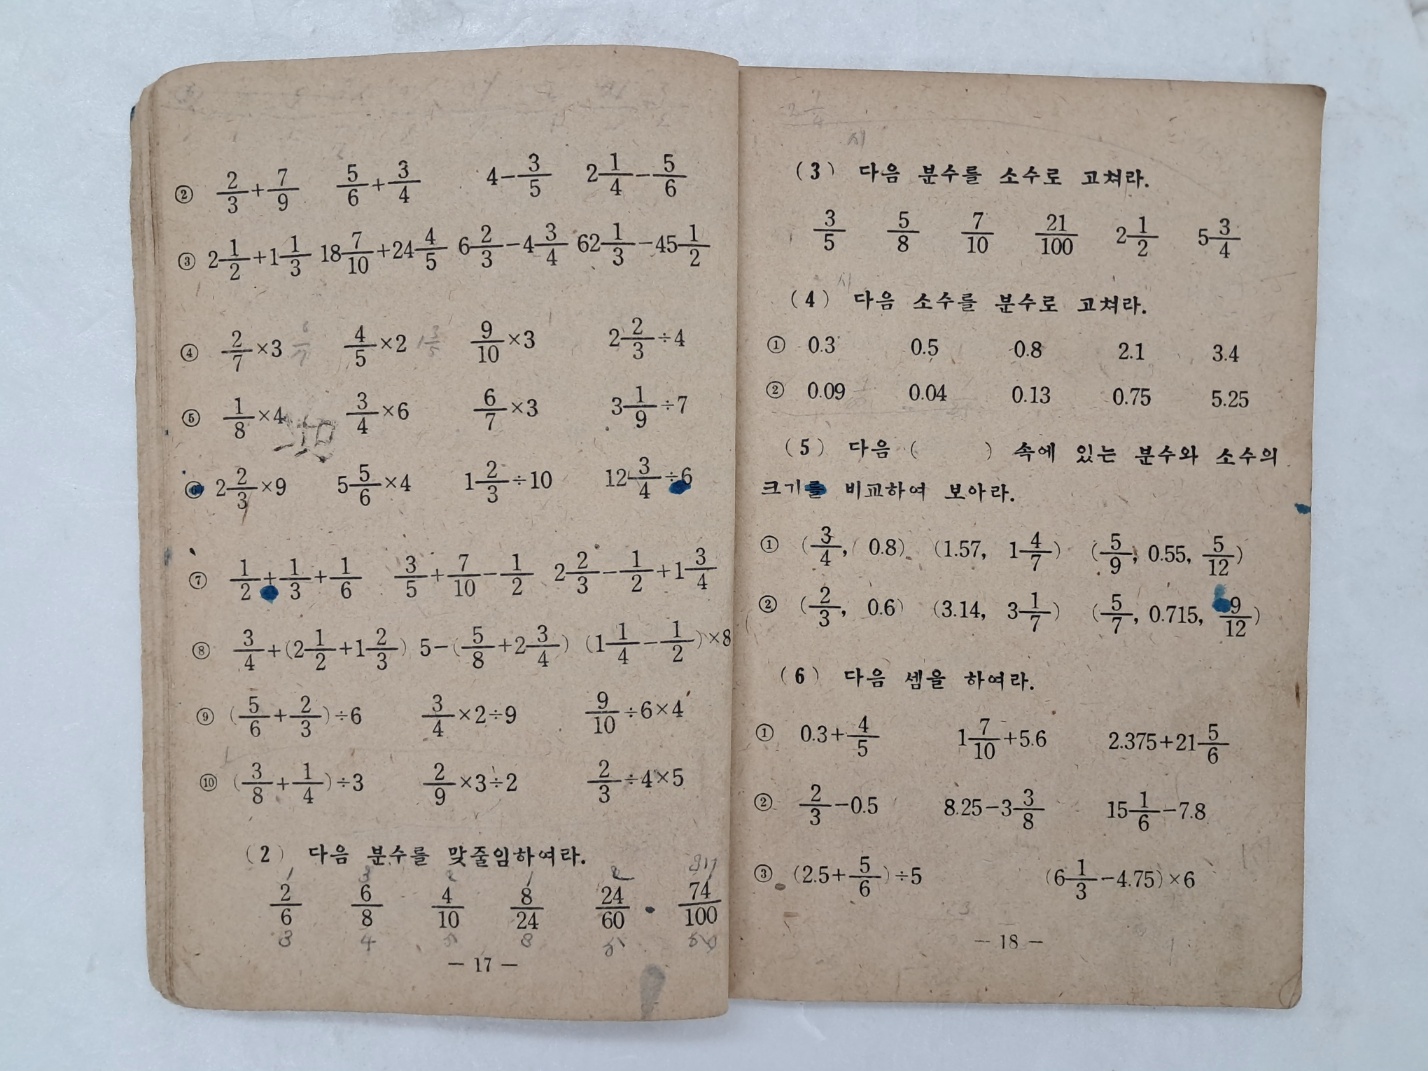 ② 2/3+7/9 5/6+3/4 4−3/5 2 1/4−5/6
③ 2 1/2+1 1/3 18 7/10+24 4/5 6 2/3−4 3/4 62 1/3−45 1/2
④ 2/7×3 4/5×2 9/10×3 2 2/3÷4
⑤ 1/8×4 3/4×6 6/7×3 3 1/9÷7
2 2/3×9 5 5/6×4 1 2/3÷10 12 3/4÷6
⑦ 1/2+1/3+1/6 3/5+7/10−1/2 2 2/3−1/2+1 3/4
⑧ 3/4+(2 1/2+1 2/3) 5−(5/8+2 3/4) (1 1/4−1/2)×8
⑨ (5/6+2/3)÷6 3/4×2÷9 9/10÷6×4
⑩ (3/8+1/4)÷3 2/9×3÷2 2/3÷4×5
(2) 다음 분수를 맞줄임하여라.
2/6 6/8 4/10 8/24 24/60 74/100
— 17 —
(3) 다음 분수를 소수로 고쳐라.
3/5 5/8 7/10 21/100 2 1/2 5 3/4
(4) 다음 소수를 분수로 고쳐라.
① 0.3 0.5 0.8 2.1 3.4
② 0.09 0.04 0.13 0.75 5.25
(5) 다음 ( ) 속에 있는 분수와 소수의
크기를 비교하여 보아라.
① (3/4, 0.8) (1.57, 1 4/7) (5/9, 0.55, 5/12)
② (2/3, 0.6) (3.14, 3 1/7) (5/7, 0.715, 9/12)
(6) 다음 셈을 하여라.
① 0.3+4/5 1 7/10+5.6 2.375+21 5/6
② 2/3−0.5 8.25−3 3/8 15 1/6−7.8
③ (2.5+5/6)÷5 (6 1/3−4.75)×6
— 18 —